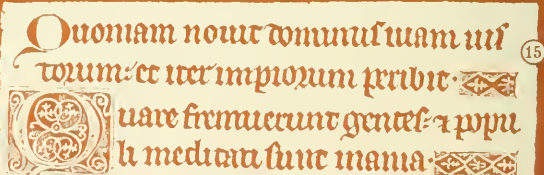 Quoniam nouit dominus uiam uis
torum: et iter impiorum peribit.
Quare fremuerunt gentes: ⁊ popu
li meditati sunt inania.
15